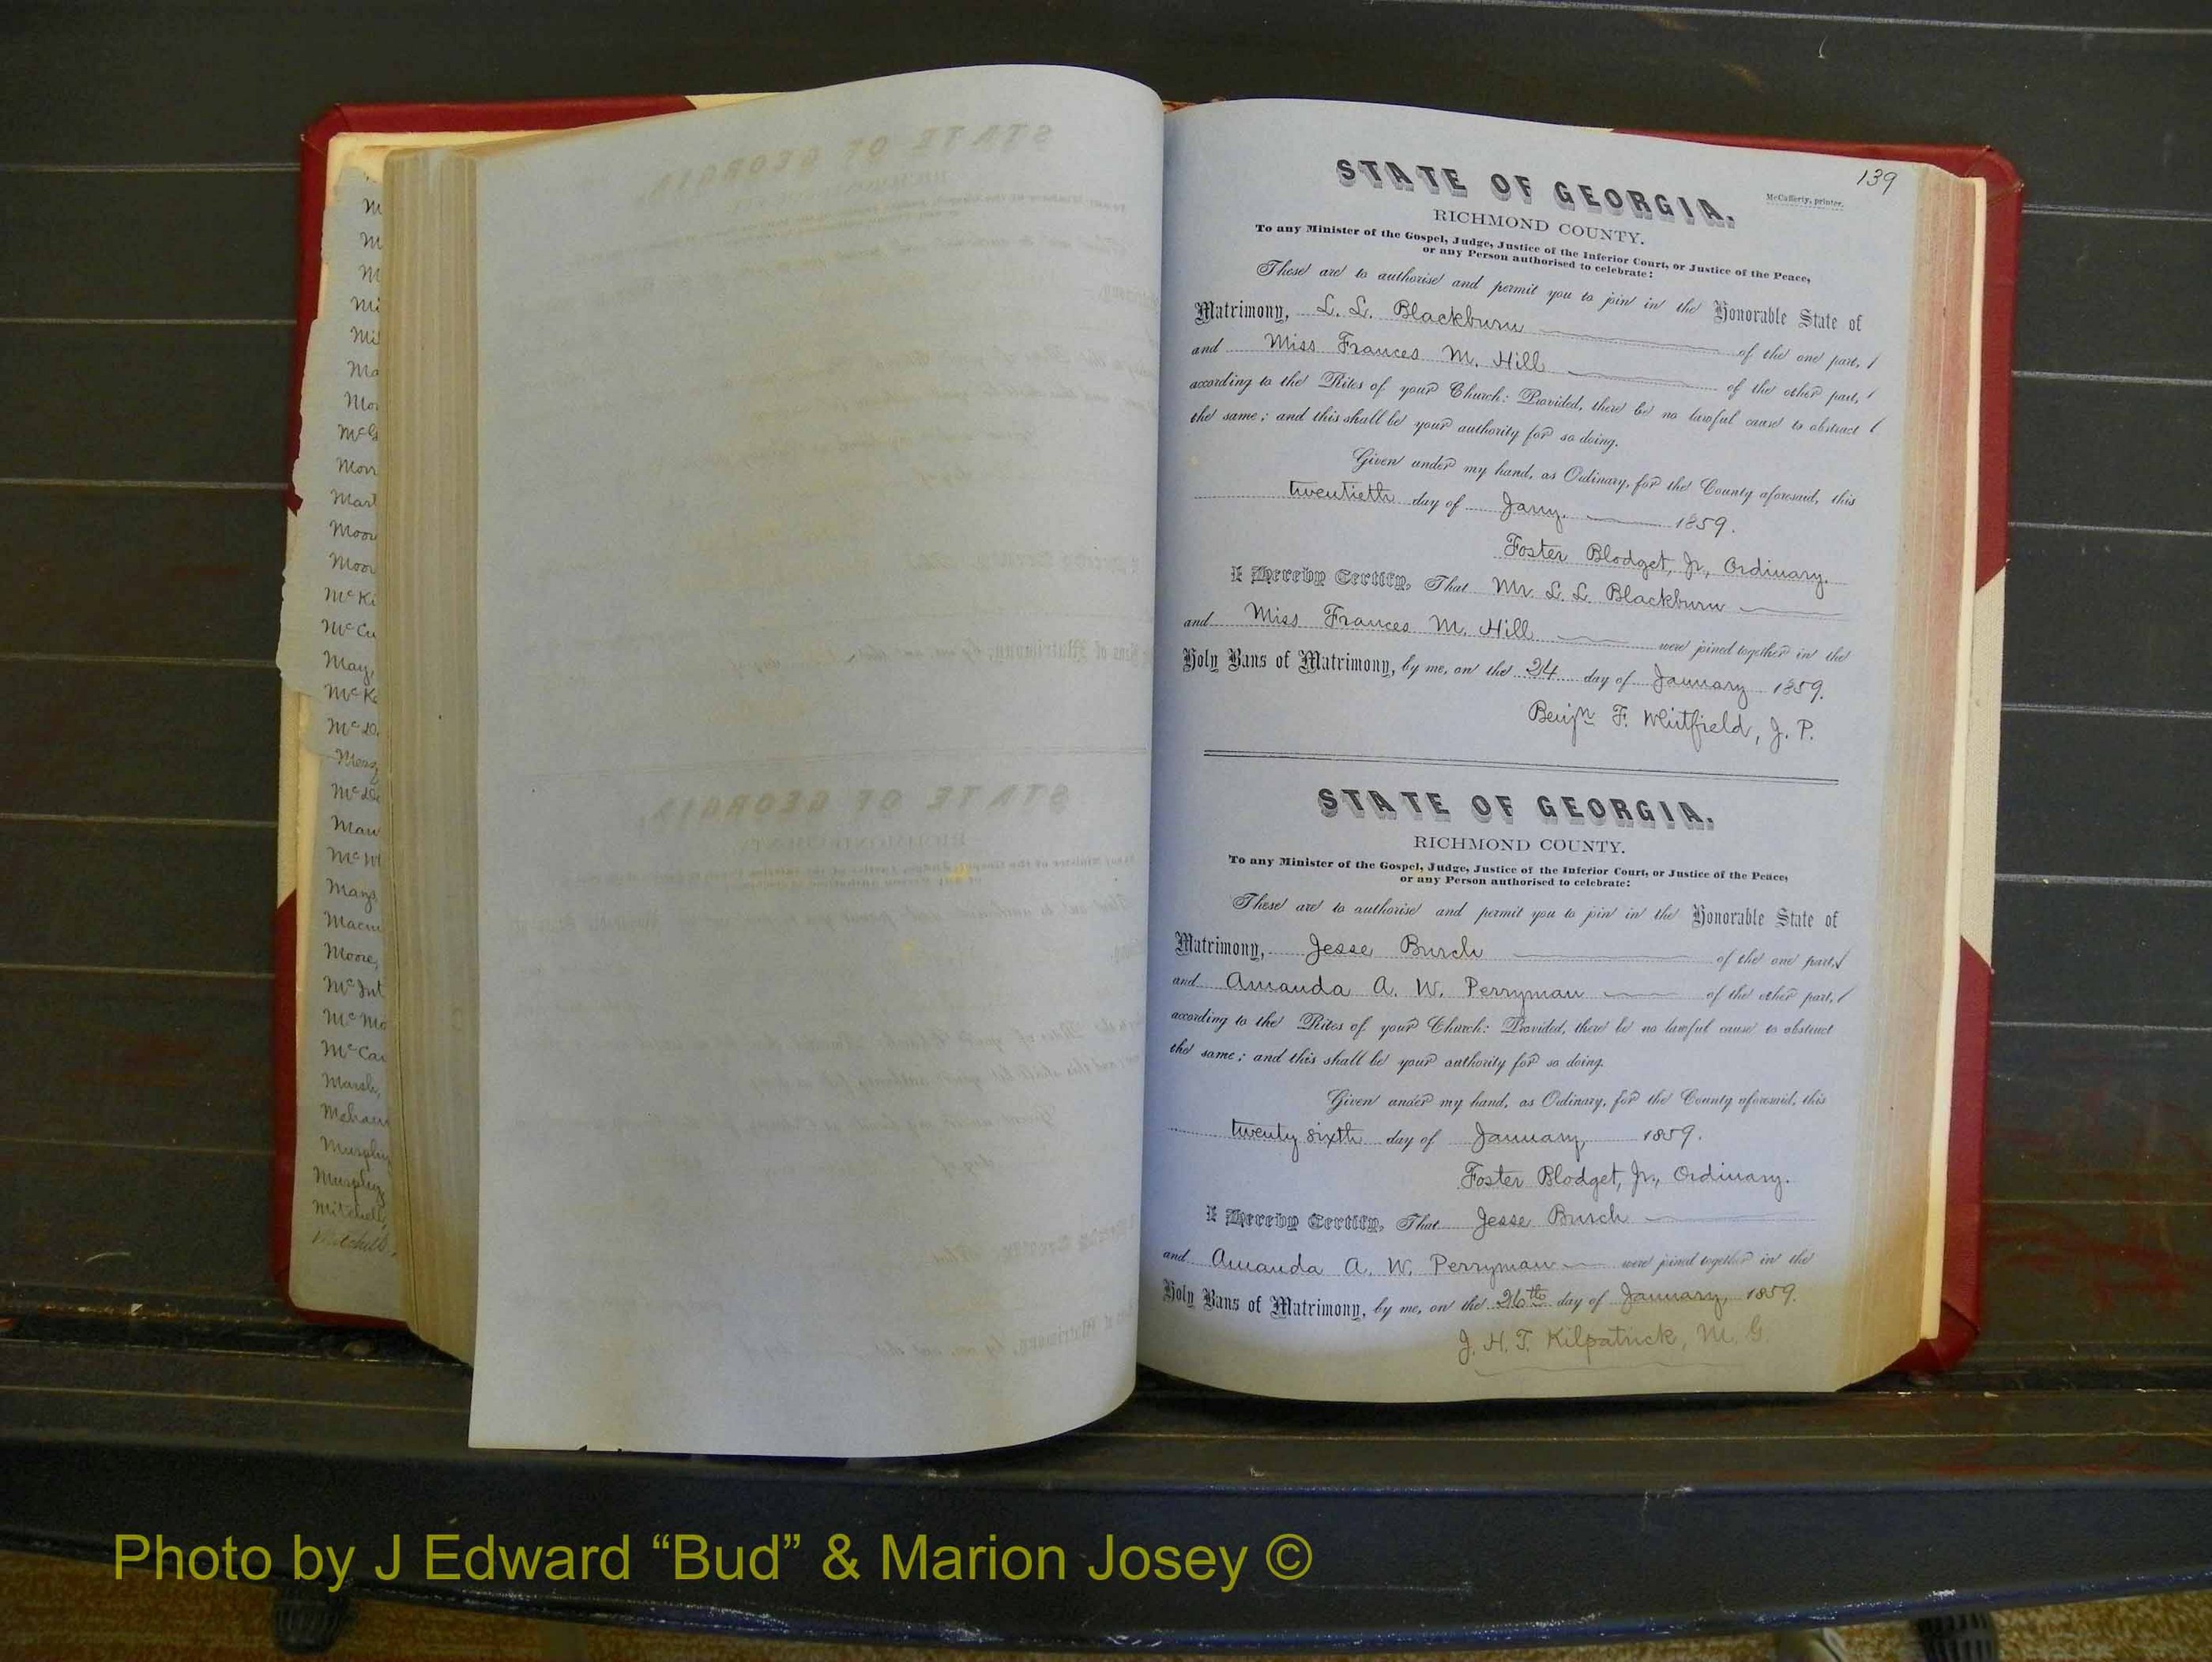 M
M
M
Mi
Mil
Ma
Mor
McG
Morr
Mart
Moor
Moor
McKi
McCu
May,
McKe
McD
McDe
Maur
McW
Mays
Macm
Moore,
McInt
McMo
McCar
Marsh,
Mehar
Murphy
Murphy
Mitchell,
Mitchell,
STATE OF GEORGIA
STATE OF GEORGIA.
RICHMOND COUNTY.
139
McCafferty, printer.
STATE OF GEORGIA.
RICHMOND COUNTY.
To any Minister of the Gospel, Judge, Justice of the Inferior Court, or Justice of the Peace,
or any Person authorised to celebrate:
These are to authorise and permit you to join in the Honorable State of
Matrimony, L. L. Blackburn of the one part,
and Miss Frances M. Hill of the other part,
according to the Rites of your Church: Provided, there be no lawful cause to obstruct
the same; and this shall be your authority for so doing.
Given under my hand, as Ordinary, for the County aforesaid, this
twentieth day of Jany. 1859.
Foster Blodget, Jr., Ordinary.
I Hereby Certify, That Mr. L. L. Blackburn
and Miss Frances M. Hill were joined together in the
Holy Bans of Matrimony, by me, on the 24 day of January 1859.
Benjn F. Whitfield, J. P.
STATE OF GEORGIA.
RICHMOND COUNTY.
To any Minister of the Gospel, Judge, Justice of the Inferior Court, or Justice of the Peace,
or any Person authorised to celebrate:
These are to authorise and permit you to join in the Honorable State of
Matrimony, Jesse Burch of the one part,
and Amanda A. W. Perryman of the other part,
according to the Rites of your Church: Provided, there be no lawful cause to obstruct
the same; and this shall be your authority for so doing.
Given under my hand, as Ordinary, for the County aforesaid, this
twenty sixth day of January, 1859.
Foster Blodget, Jr., Ordinary.
I Hereby Certify, That Jesse Burch
and Amanda A. W. Perryman were joined together in the
Holy Bans of Matrimony, by me, on the 26th day of January, 1859.
J. H. T. Kilpatrick, M. G.
Photo by J Edward “Bud” & Marion Josey ©